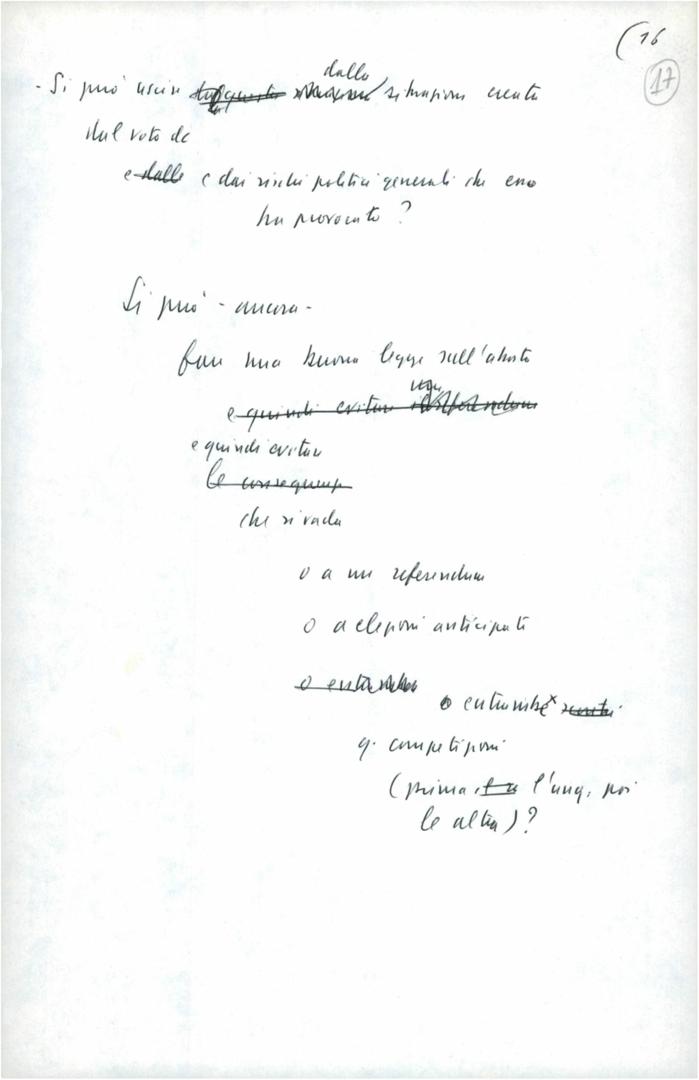 (16
17
dalla
- Si può uscire situazione creata
dal voto dc
e dalle e dai rischi politici generali che esso
ha provocato?
Si può - ancora -
fare una buona legge sull'aborto
e quindi evitare referendum
e quindi evitare
le conseguenze
che si vada
o a un referendum
o a elezioni anticipate
o entrambe
o entrambe x
q. competizioni
(prima l'una, poi
le altre)?